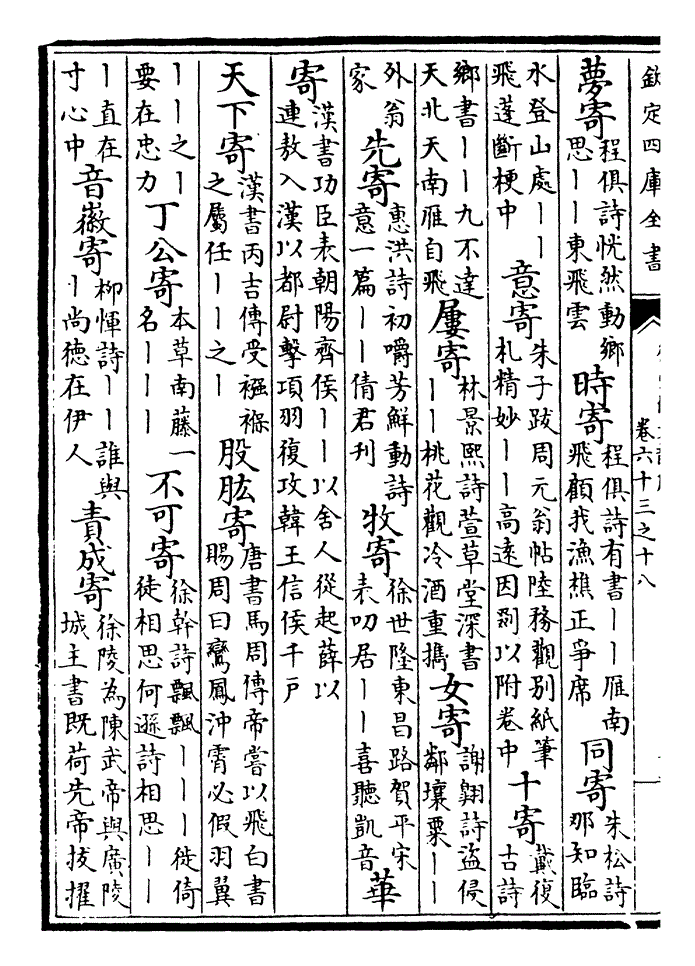 欽定四庫全書
卷六十三之十八
夢寄程俱詩恍然動鄉思丨丨東飛雲 時寄程俱詩有書丨丨雁南飛顧我漁樵正爭席 同寄朱松詩那知臨
水登山處丨丨飛蓬斷梗中 意寄朱子跋周元翁帖陸務觀別紙筆札精妙丨丨高逺因劄以附卷中 十寄戴復古詩
鄉書丨丨九不達天北天南雁自飛 屢寄林景熙詩萱草堂深書丨丨桃花觀冷酒重攜 女寄謝翱詩盜侵鄰壤粟丨丨
外翁家 先寄惠洪詩初嚼芳鮮動詩意一篇丨丨倩君刋 牧寄徐世隆東昌路賀平宋表叨居丨丨喜聽凱音 華
寄漢書功臣表朝陽齊侯丨丨以舍人從起薛以連敖入漢以都尉擊項羽復攻韓王信侯千戶
天下寄漢書丙吉傳受襁褓之屬任丨丨之丨 股肱寄唐書馬周傳帝嘗以飛白書賜周曰鸞鳳沖霄必假羽翼
丨丨之丨要在忠力 丁公寄本草南藤一名丨丨丨 不可寄徐幹詩飄飄丨丨丨徙倚徒相思何遜詩相思丨丨
丨直在寸心中 音徽寄柳惲詩丨丨誰與丨尚德在伊人 責成寄徐陵為陳武帝與廣陵城主書既荷先帝拔擢